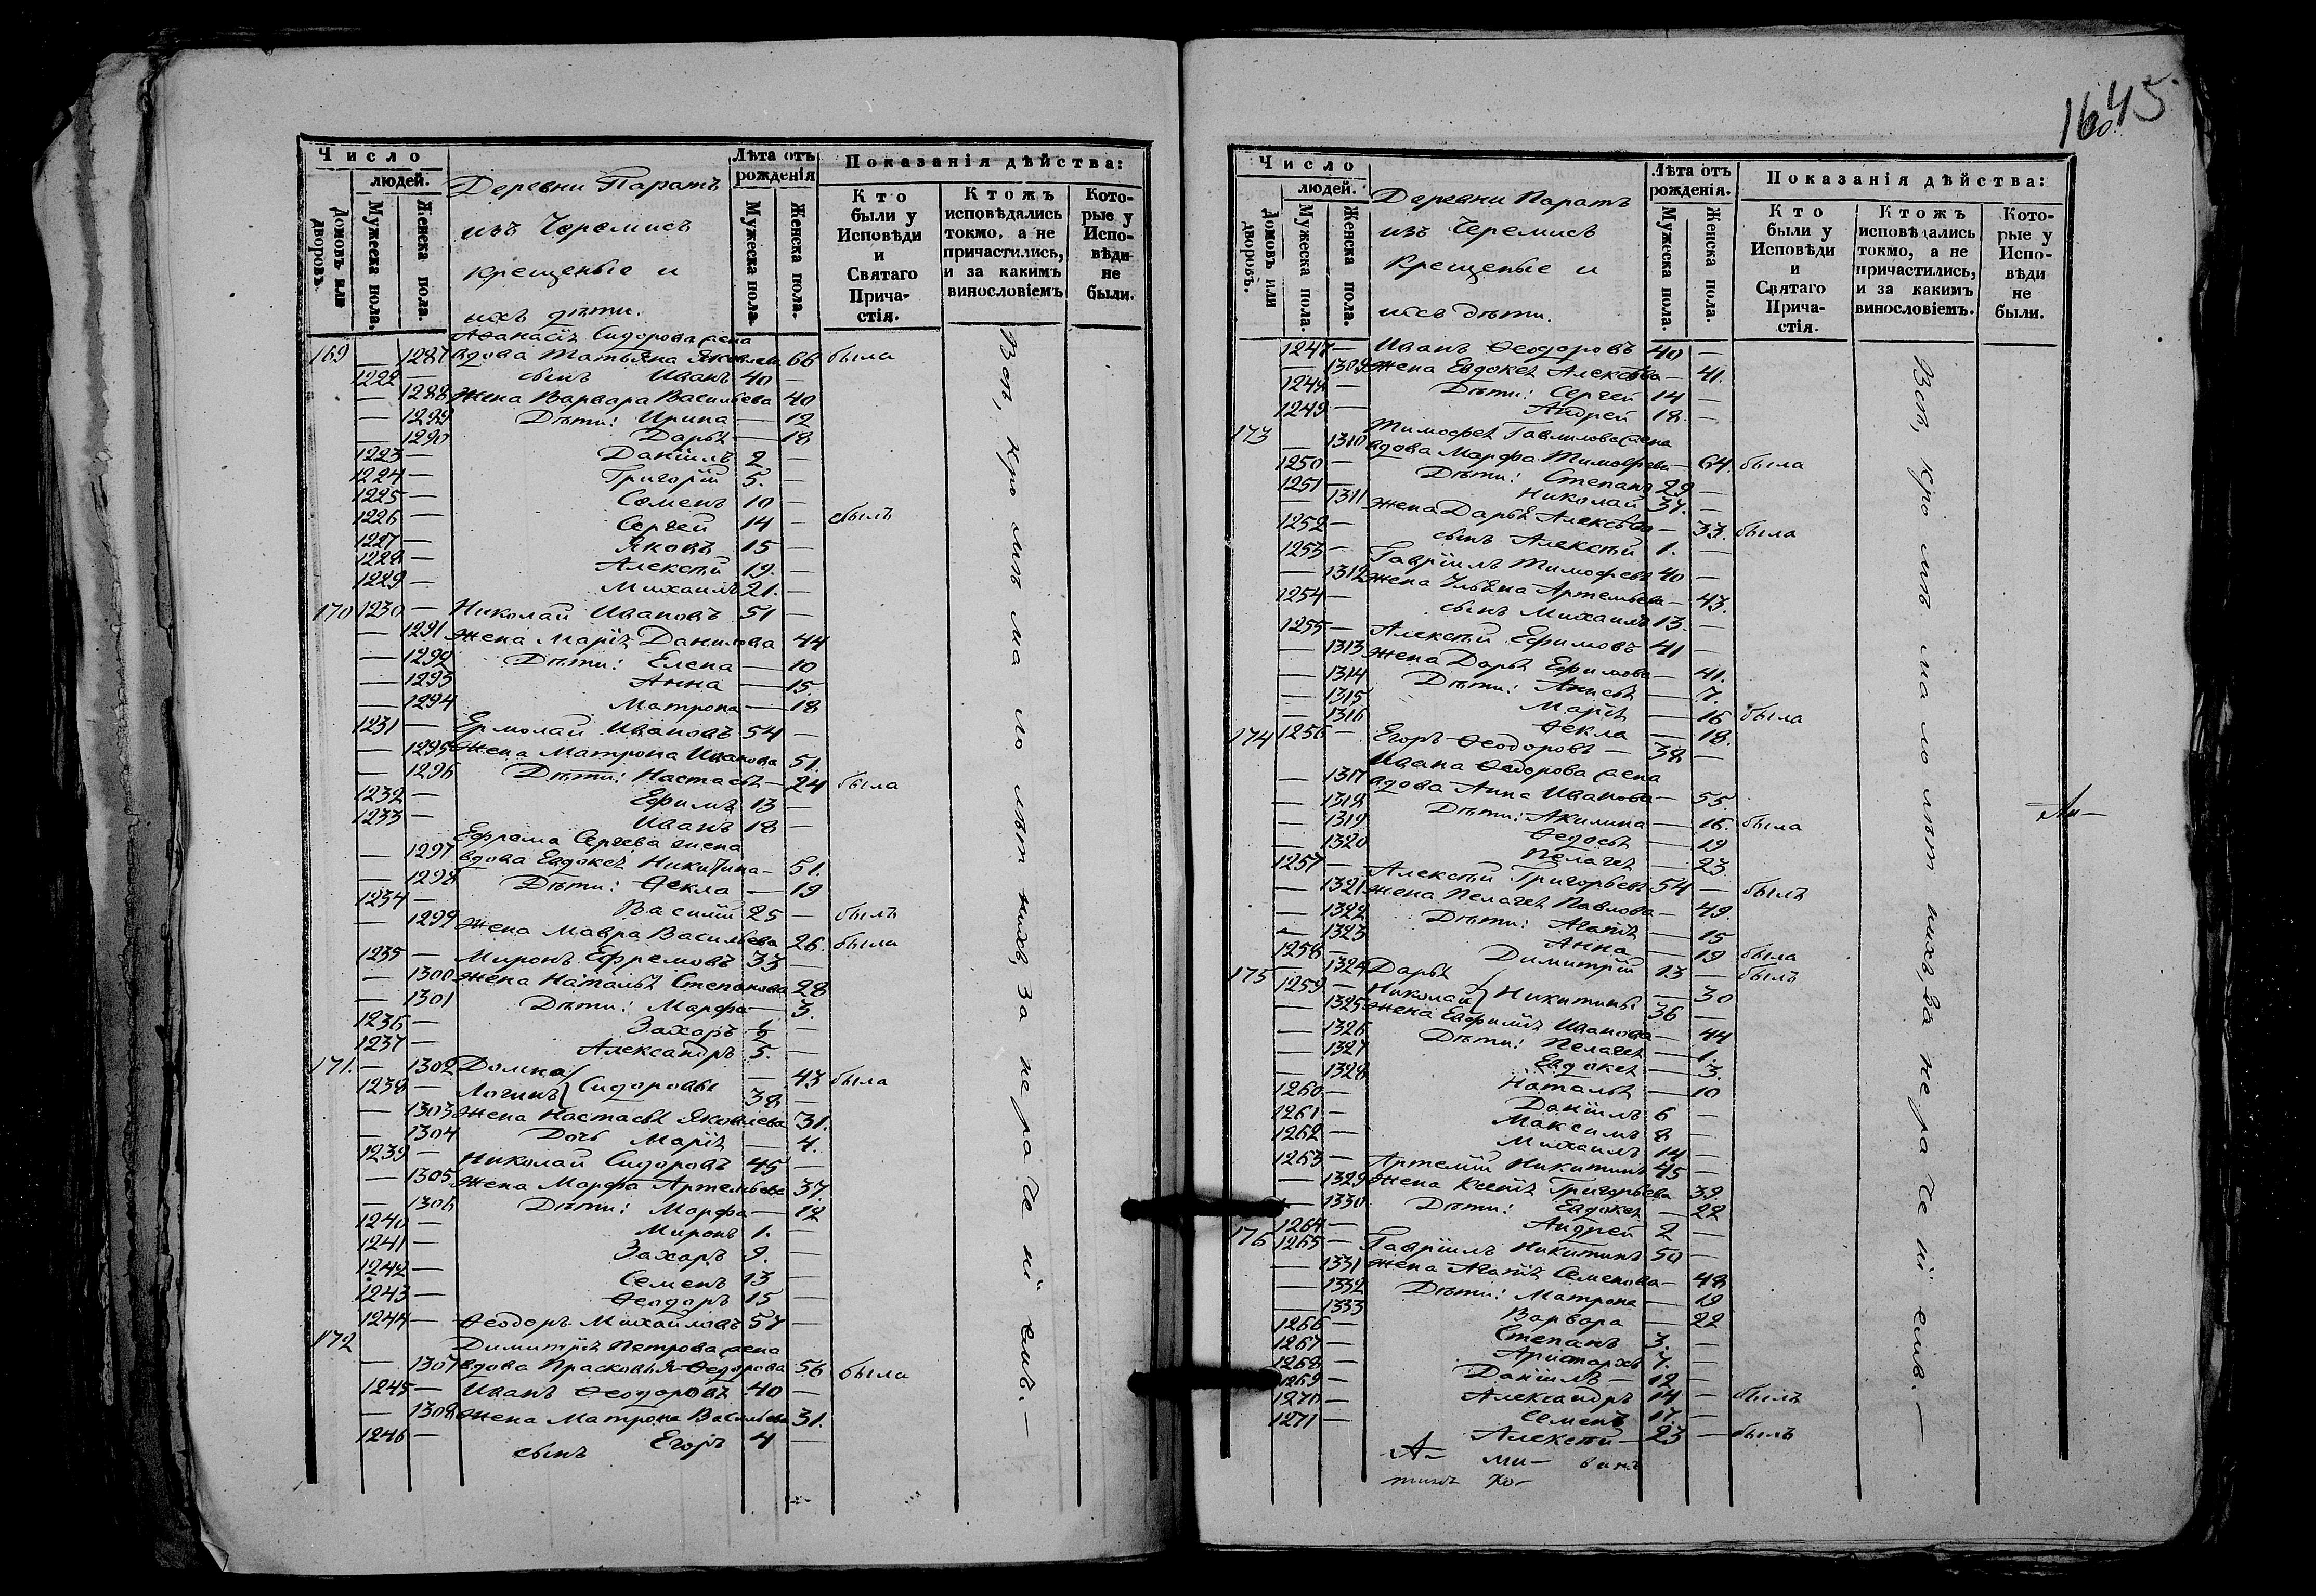 1645
Число
людей.
Домовъ или дворовъ.
Мужеска пола.
Женска пола.
Деревни Паратъ
изъ Черемисъ
крещеные и
ихъ дѣти.
Лѣта отъ рожденія
Мужеска пола.
Женска пола.
Показанія дѣйства:
Кто были у Исповѣди и Святаго Причастія.
Ктожъ исповѣдались токмо, а не причастились, и за какимъ винословіемъ
Которые у Исповѣди не были.
Аѳанасія Сидорова жена
169 — 1287 вдова Татьяна Яковлева 66 была
1222 — сынъ Иванъ 40 —
— 1288 жена Варвара Васильева 40
— 1289 Дѣти: Ирина — 12
— 1290 Дарья — 18
1223 — Даніилъ 2 —
1224 — Григорій 5. —
1225 — Семенъ 10 —
1226 — Сергей 14 — былъ
1227 — Яковъ 15 —
1228 — Алексѣй 19. —
1229 — Михаилъ 21. —
170 1230 — Николай Ивановъ 51 —
— 1291 жена Марія Данилова 44
— 1292 Дѣти: Елена — 10
— 1293 Анна — 15.
— 1294 Матрона — 18
1231 — Ермолай Ивановъ 54 —
— 1295 жена Матрона Иванова 51.
— 1296 Дѣти: Настасья — 24 была
1232 — Ефимъ 13 —
1233 — Иванъ 18 —
Ефрема Сергева жена
— 1297 вдова Евдокея Никитина — 51.
— 1298 Дѣти: Ѳекла — 19
1234 — Василій 25 — былъ
— 1299 жена Мавра Васильева 26. была
1235 — Миронъ Ефремовъ 33 —
— 1300 жена Наталья Степанова 28
— 1301 Дѣти: Марфа — 3.
1236 — Захаръ ½ —
1237 — Александръ 5. —
171. — 1302 Домна — 43 была
1238 — Логинъ } Сидоровы 38 —
— 1303 жена Настасья Яковлева 31.
— 1304 Дочь Марія — 4.
1239 — Николай Сидоровъ 45 —
— 1305 жена Марфа Артемьева 37
— 1306 Дѣти: Марфа — 12
1240 — Миронъ 1. —
1241 — Захаръ 9. —
1242 — Семенъ 13 —
1243 — Ѳеодоръ 15 —
1244 — Ѳеодоръ Михайловъ 57 —
172 Димитрія Петрова жена
— 1307 вдова Прасковья Ѳедорова 56 была
1245 — Иванъ Ѳеодоровъ 40 —
— 1308 жена Матрона Васильева 31.
1246 — сынъ Егоръ 4 —
Всѣ, кромѣ малолѣтнихъ, за нераченіемъ. —
Число
людей.
Домовъ или дворовъ.
Мужеска пола.
Женска пола.
Деревни Паратъ
изъ Черемисъ
крещеные и
ихъ дѣти.
Лѣта отъ рожденія.
Мужеска пола.
Женска пола.
Показанія дѣйства:
Кто были у Исповѣди и Святаго Причастія.
Ктожъ исповѣдались токмо, а не причастились, и за какимъ винословіемъ.
Которые у Исповѣди не были.
1247 — Иванъ Ѳеодоровъ 40 —
— 1309 жена Евдокея Алексѣва — 41.
1248 — Дѣти: Сергей 14 —
1249 — Андрей 18. —
173 Тимофея Гаврилова жена
— 1310 вдова Марфа Тимофеева — 64. была
1250 — Дѣти: Степанъ 29 —
1251 — Николай 37. —
— 1311 жена Дарья Алексѣва — 33. была
1252 — сынъ Алексѣй 1. —
1253 — Гавріилъ Тимофеевъ 40 —
— 1312 жена Ульяна Артемьева — 43.
1254 — сынъ Михаилъ 13. —
1255 — Алексѣй Ефимовъ 41 —
— 1313 жена Дарья Ефимова — 41.
— 1314 Дѣти: Анисья — 7.
— 1315 Марія — 16 была
— 1316 Ѳекла — 18.
174 1256 — Егоръ Ѳеодоровъ — 38 —
Ивана Ѳедорова жена
— 1317 вдова Анна Иванова — 55.
— 1318 Дѣти: Акилина — 16. была
— 1319 Ѳедосья — 19
— 1320 Пелагея — 23.
1257 — Алексѣй Григорьевъ 54 — былъ
— 1321 жена Пелагея Павлова — 49.
— 1322 Дѣти: — 15
— 1323 Анна — 19 была
1258 — Димитрій 13 — былъ
175 — 1324 Дарья — 30
1259 — Николай } Никитины 36 —
— 1325 жена Евфимія Иванова — 44
— 1326 Дѣти: Пелагея — 1.
— 1327 Евдокея — 3.
— 1328 Наталья — 10
1260 — Даніилъ 6 —
1261 — Максимъ 8 —
1262 — Михаилъ 14 —
1263 — Артемій Никитинъ 45 —
— 1329 жена Ксенія Григорьева 39.
— 1330 Дѣти: Евдокея — 22
1264 — Андрей 2 —
176 1265 — Гавріилъ Никитинъ 50 —
— 1331 жена Семенова — 48
— 1332 Дѣти: Матрона — 19
— 1333 Варвара — 22
1266 — Степанъ 3. —
1267 — Аристархъ 7. —
1268 — Даніилъ — 12 —
1269 — Александръ 14 — былъ
1270 — Семенъ 17. —
1271 — Алексѣй — 23 — былъ
Всѣ, кромѣ малолѣтнихъ, за нераченіемъ. —